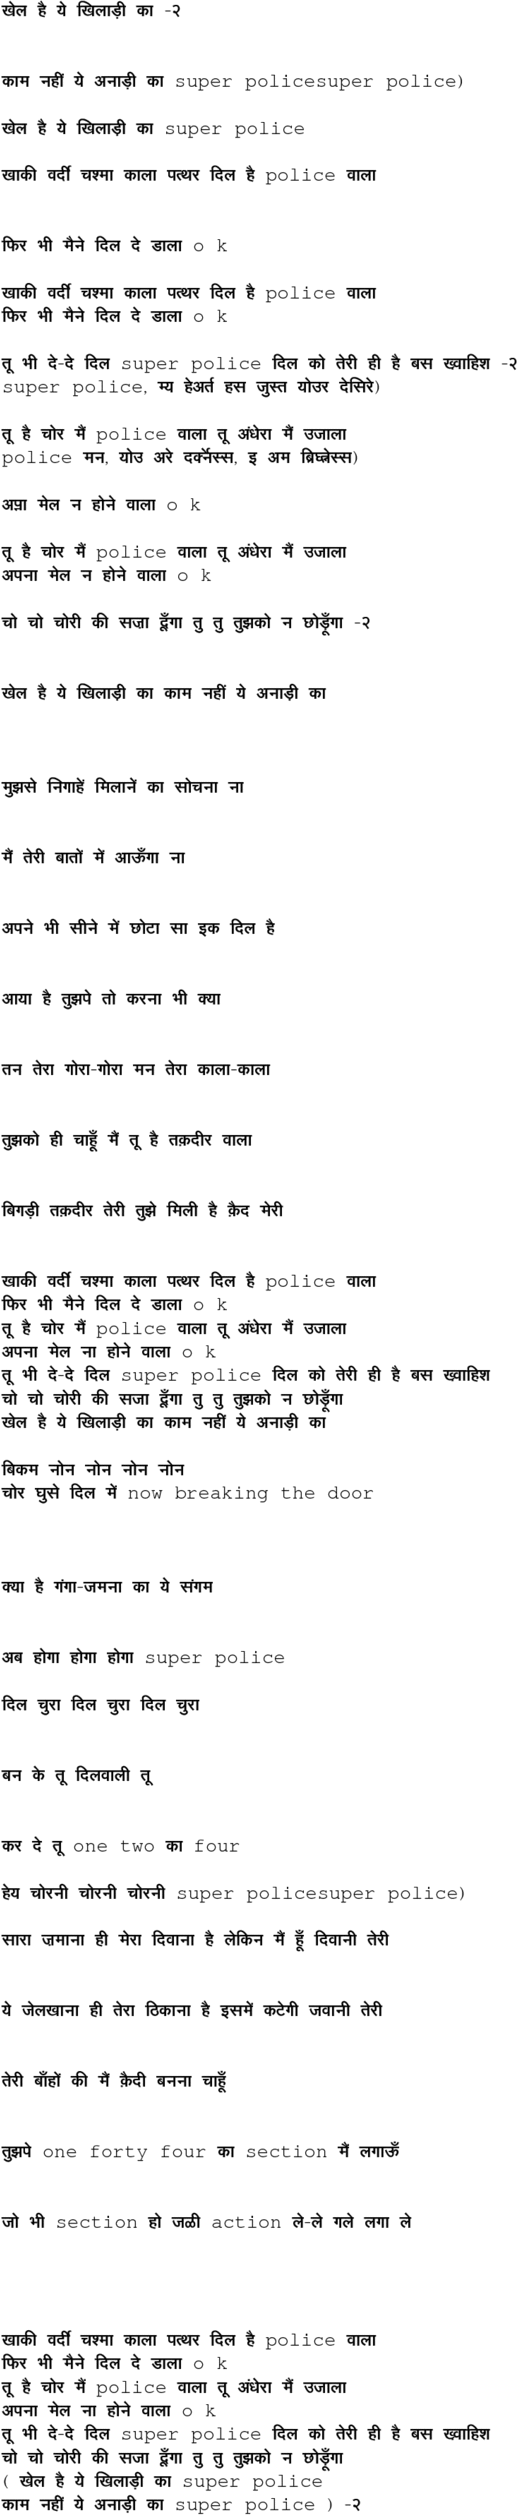 खेल है ये खिलाड़ी का -२
काम नहीं ये अनाड़ी का super policesuper police)
खेल है ये खिलाड़ी का super police
खाकी वर्दी चश्मा काला पत्थर दिल है police वाला
फिर भी मैने दिल दे डाला o k
खाकी वर्दी चश्मा काला पत्थर दिल है police वाला
फिर भी मैने दिल दे डाला o k
तू भी दे-दे दिल super police दिल को तेरी ही है बस ख्वाहिश -२
super police, म्य हेअर्त हस जुस्त योउर देसिरे)
तू है चोर मैं police वाला तू अंधेरा मैं उजाला
police मन, योउ अरे दर्क्नेस्स, इ अम ब्रिघ्त्नेस्स)
अप्ना मेल न होने वाला o k
तू है चोर मैं police वाला तू अंधेरा मैं उजाला
अपना मेल न होने वाला o k
चो चो चोरी की सज़ा दूँगा तु तु तुझको न छोड़ूँगा -२
खेल है ये खिलाड़ी का काम नहीं ये अनाड़ी का
मुझसे निगाहें मिलानें का सोचना ना
मैं तेरी बातों में आऊँगा ना
अपने भी सीने में छोटा सा इक दिल है
आया है तुझपे तो करना भी क्या
तन तेरा गोरा-गोरा मन तेरा काला-काला
तुझको ही चाहूँ मैं तू है तक़दीर वाला
बिगड़ी तक़दीर तेरी तुझे मिली है क़ैद मेरी
खाकी वर्दी चश्मा काला पत्थर दिल है police वाला
फिर भी मैने दिल दे डाला o k
तू है चोर मैं police वाला तू अंधेरा मैं उजाला
अपना मेल ना होने वाला o k
तू भी दे-दे दिल super police दिल को तेरी ही है बस ख्वाहिश
चो चो चोरी की सजा दूँगा तु तु तुझको न छोड़ूँगा
खेल है ये खिलाड़ी का काम नहीं ये अनाड़ी का
बिकम नोन नोन नोन नोन
चोर घुसे दिल में now breaking the door
क्या है गंगा-जमना का ये संगम
अब होगा होगा होगा super police
दिल चुरा दिल चुरा दिल चुरा
बन के तू दिलवाली तू
कर दे तू one two का four
हेय चोरनी चोरनी चोरनी super policesuper police)
सारा ज़माना ही मेरा दिवाना है लेकिन मैं हूँ दिवानी तेरी
ये जेलखाना ही तेरा ठिकाना है इसमें कटेगी जवानी तेरी
तेरी बाँहों की मैं क़ैदी बनना चाहूँ
तुझपे one forty four का section मैं लगाऊँ
जो भी section हो जळी action ले-ले गले लगा ले
खाकी वर्दी चश्मा काला पत्थर दिल है police वाला
फिर भी मैने दिल दे डाला o k
तू है चोर मैं police वाला तू अंधेरा मैं उजाला
अपना मेल ना होने वाला o k
तू भी दे-दे दिल super police दिल को तेरी ही है बस ख्वाहिश
चो चो चोरी की सजा दूँगा तु तु तुझको न छोड़ूँगा
( खेल है ये खिलाड़ी का super police
काम नहीं ये अनाड़ी का super police ) -२